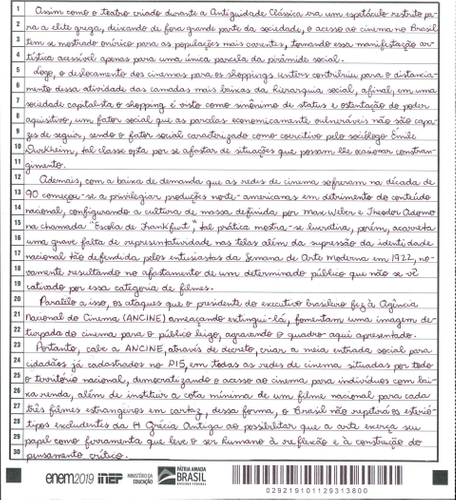 1 Assim como o teatro criado durante a Antiguidade Clássica era um espetáculo restrito pa-
2 ra a elite grega, deixando de fora grande parte da sociedade, o acesso ao cinema no Brasil
3 tem se mostrado onírico para as populações mais carentes, tornando essa manifestação ar-
4 tística acessível apenas para uma única parcela da pirâmide social.
5 Logo, o deslocamento dos cinemas para os shoppings centers contribuiu para o distancia-
6 mento dessa atividade das camadas mais baixas da hierarquia social, afinal, em uma
7 sociedade capitalista o shopping é visto como sinônimo de status e ostentação do poder
8 aquisitivo, um fator social que as parcelas economicamente vulneráveis não são capa-
9 zes de seguir, sendo o fator social caracterizado como coercitivo pelo sociólogo Émile
10 Durkheim, tal classe opta por se afastar de situações que possam lhe ocasionar constran-
11 gimento.
12 Ademais, com a baixa de demanda que as redes de cinema sofreram na década de
13 90 começou-se a privilegiar produções norte-americanas em detrimento do conteúdo
14 nacional, configurando a cultura de massa definida por Max Weber e Theodor Adorno
15 na chamada "Escola de Frankfurt", tal prática mostra-se lucrativa, porém, acarreta
16 uma grave falta de representatividade nas telas além da supressão da identidade
17 nacional tão defendida pelos entusiastas da Semana de Arte Moderna em 1922, no-
18 vamente resultando no afastamento de um determinado público que não se vê
19 cativado por essa categoria de filmes.
20 Paralelo a isso, os ataques que o presidente do executivo brasileiro fez à Agência
21 Nacional do Cinema (ANCINE) ameaçando extingui-lá, fomentam uma imagem de-
22 turpada do cinema para o público leigo, agravando o quadro aqui apresentado.
23 Portanto, cabe a ANCINE, através de decreto, criar a meia entrada social para
24 cidadãos já cadastrados no PIS, em todas as redes de cinema situadas por todo
25 o território nacional, democratizando o acesso ao cinema para indivíduos com bai-
26 xa renda, além de instituir a cota mínima de um filme nacional para cada
27 três filmes estrangeiros em cartaz, dessa forma, o Brasil não repetirá os estereó-
28 tipos excludentes da Grécia Antiga ao possibilitar que a arte exerça seu
29 papel como ferramenta que leve o ser humano à reflexão e à construção do
30 pensamento crítico.
enem2019 INEP MINISTÉRIO DA EDUCAÇÃO PÁTRIA AMADA BRASIL
029219101129313800